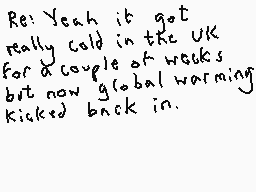 Re: Yeah it got
really cold in the UK
for a couple of weeks
but now global warming
kicked back in.